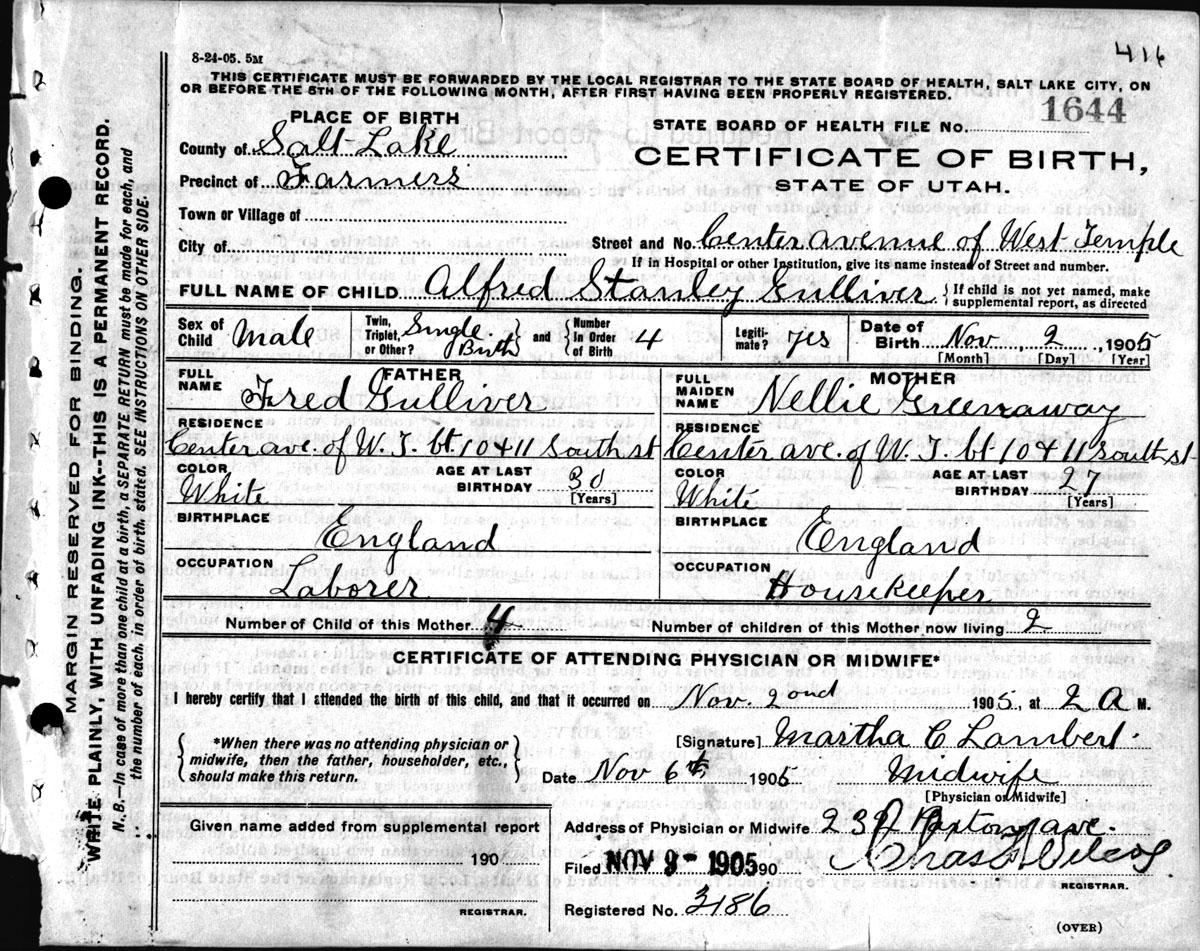 416
8-24-05. 5M
THIS CERTIFICATE MUST BE FORWARDED BY THE LOCAL REGISTRAR TO THE STATE BOARD OF HEALTH, SALT LAKE CITY, ON
OR BEFORE THE 5TH OF THE FOLLOWING MONTH, AFTER FIRST HAVING BEEN PROPERLY REGISTERED.
PLACE OF BIRTH
STATE BOARD OF HEALTH FILE No. 1644
County of Salt Lake
CERTIFICATE OF BIRTH,
Precinct of Farmers
STATE OF UTAH.
Town or Village of
City of
Street and No. Center avenue of West Temple
If in Hospital or other Institution, give its name instead of Street and number.
FULL NAME OF CHILD Alfred Stanley Gulliver { If child is not yet named, make
supplemental report, as directed
Sex of Child Male
Twin, Triplet, or Other? Single Birth } and { Number in Order of Birth 4
Legitimate? yes
Date of Birth Nov 2, 1905
[Month] [Day] [Year]
FATHER
FULL NAME Fred Gulliver
RESIDENCE
Center ave. of W. T. bt. 10 & 11 South st
COLOR White
AGE AT LAST BIRTHDAY
[Years]
BIRTHPLACE
England
OCCUPATION
Laborer
MOTHER
FULL MAIDEN NAME Nellie Greenaway
RESIDENCE
Center ave. of W. T. bt. 10 & 11 South st
COLOR White
AGE AT LAST BIRTHDAY 27
[Years]
BIRTHPLACE
England
OCCUPATION
Housekeeper
Number of Child of this Mother 4
Number of children of this Mother now living 2
CERTIFICATE OF ATTENDING PHYSICIAN OR MIDWIFE*
I hereby certify that I attended the birth of this child, and that it occurred on Nov. 2ond 1905, at 2 A M.
{ *When there was no attending physician or
midwife, then the father, householder, etc.,
should make this return. }
[Signature] Martha C Lambert.
Date Nov 6th 1905 Midwife
[Physician or Midwife]
Given name added from supplemental report
190
REGISTRAR.
Address of Physician or Midwife ave.
Filed NOV 8- 1905 90 Chas
REGISTRAR.
Registered No. 3186
(OVER)
MARGIN RESERVED FOR BINDING.
WRITE PLAINLY, WITH UNFADING INK--THIS IS A PERMANENT RECORD.
N. B.—In case of more than one child at a birth, a SEPARATE RETURN must be made for each, and
the number of each, in order of birth, stated. SEE INSTRUCTIONS ON OTHER SIDE.